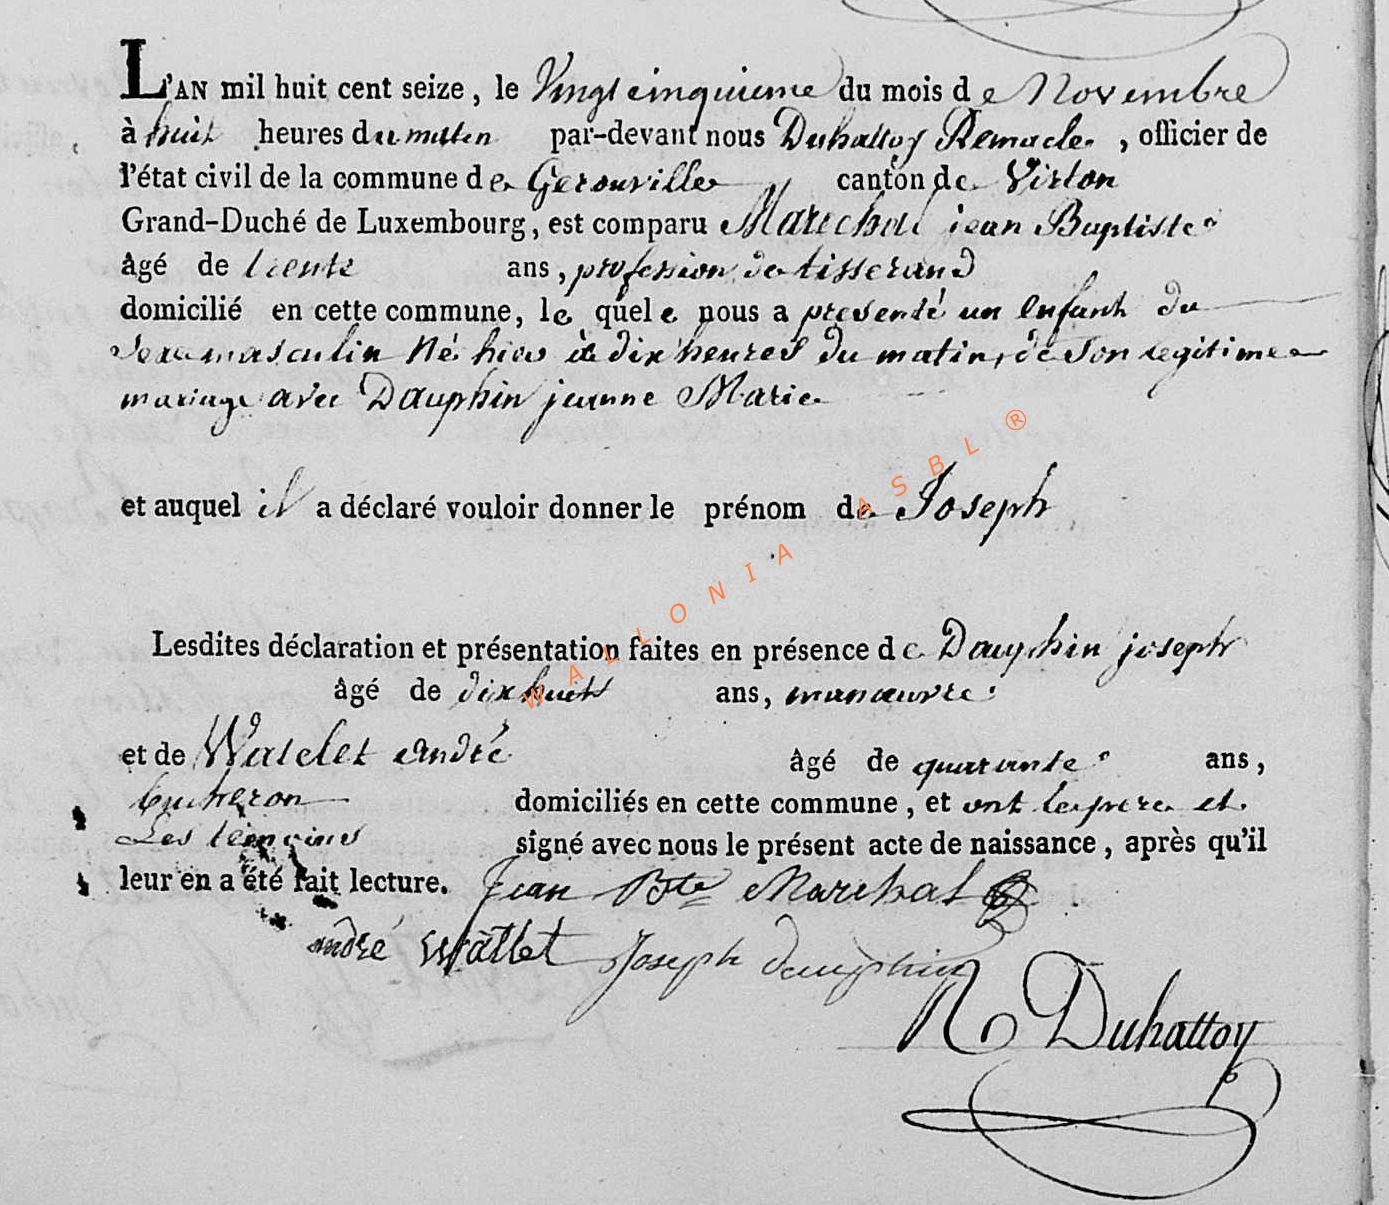 L'AN mil huit cent seize, le Vingt cinquieme du mois de Novembre
à huit heures du matin par-devant nous Duhattoy Remacle, officier de
l'état civil de la commune de Gerouville canton de Virton
Grand-Duché de Luxembourg, est comparu Marechal jean Baptiste
âgé de trente ans, profession de tisserand
domicilié en cette commune, le quel e nous a presenté un enfant du
Sexe masculin Né hier à dix heures du matin, de Son legitime
mariage avec Dauphin jeanne Marie
et auquel il a déclaré vouloir donner le prénom de Joseph
Lesdites déclaration et présentation faites en présence de Dauphin joseph
âgé de dix huit ans, manœuvre
et de Watelet andré âgé de quarante ans,
bucheron domiciliés en cette commune, et ont le pere et
Les temoins signé avec nous le présent acte de naissance, après qu'il
leur en a été fait lecture. Jean Bte Marchal
andré Watlet Joseph dauphin
R Duhattoy
WALLONIA ASBL ®